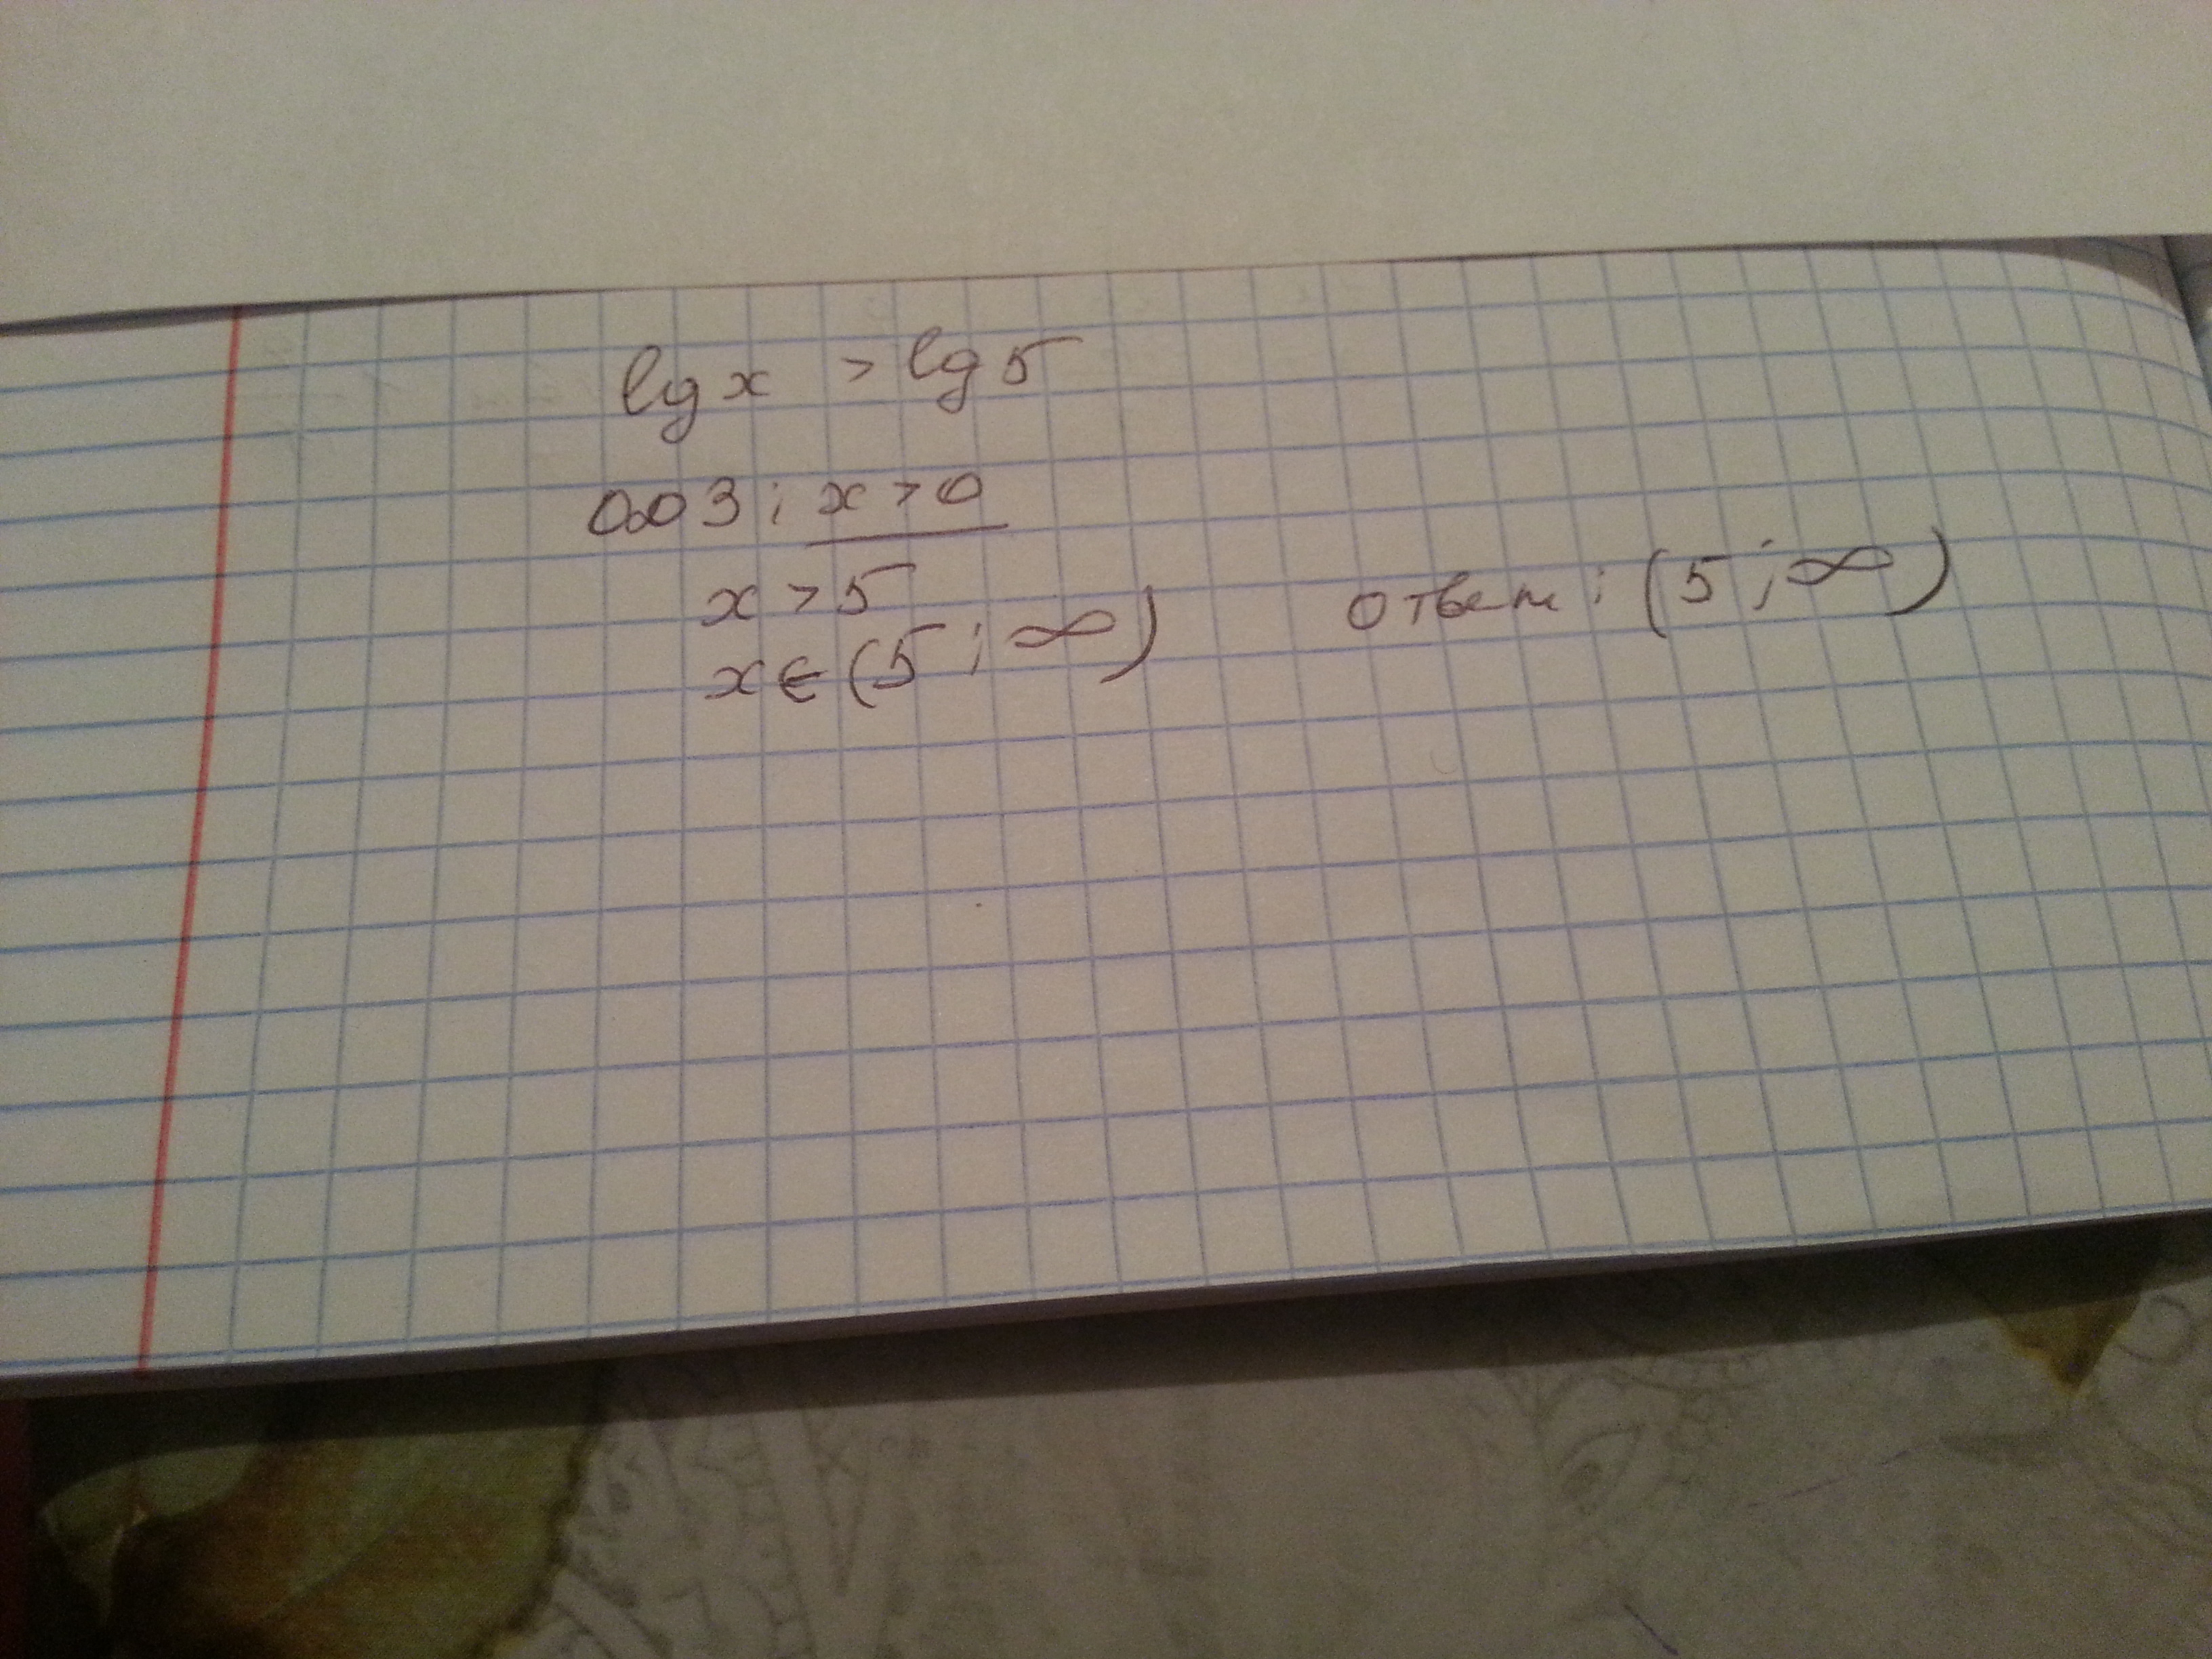 lg x > lg 5
ООЗ: x > 0
x > 5
x ∈ (5; ∞)
ответ: (5; ∞)